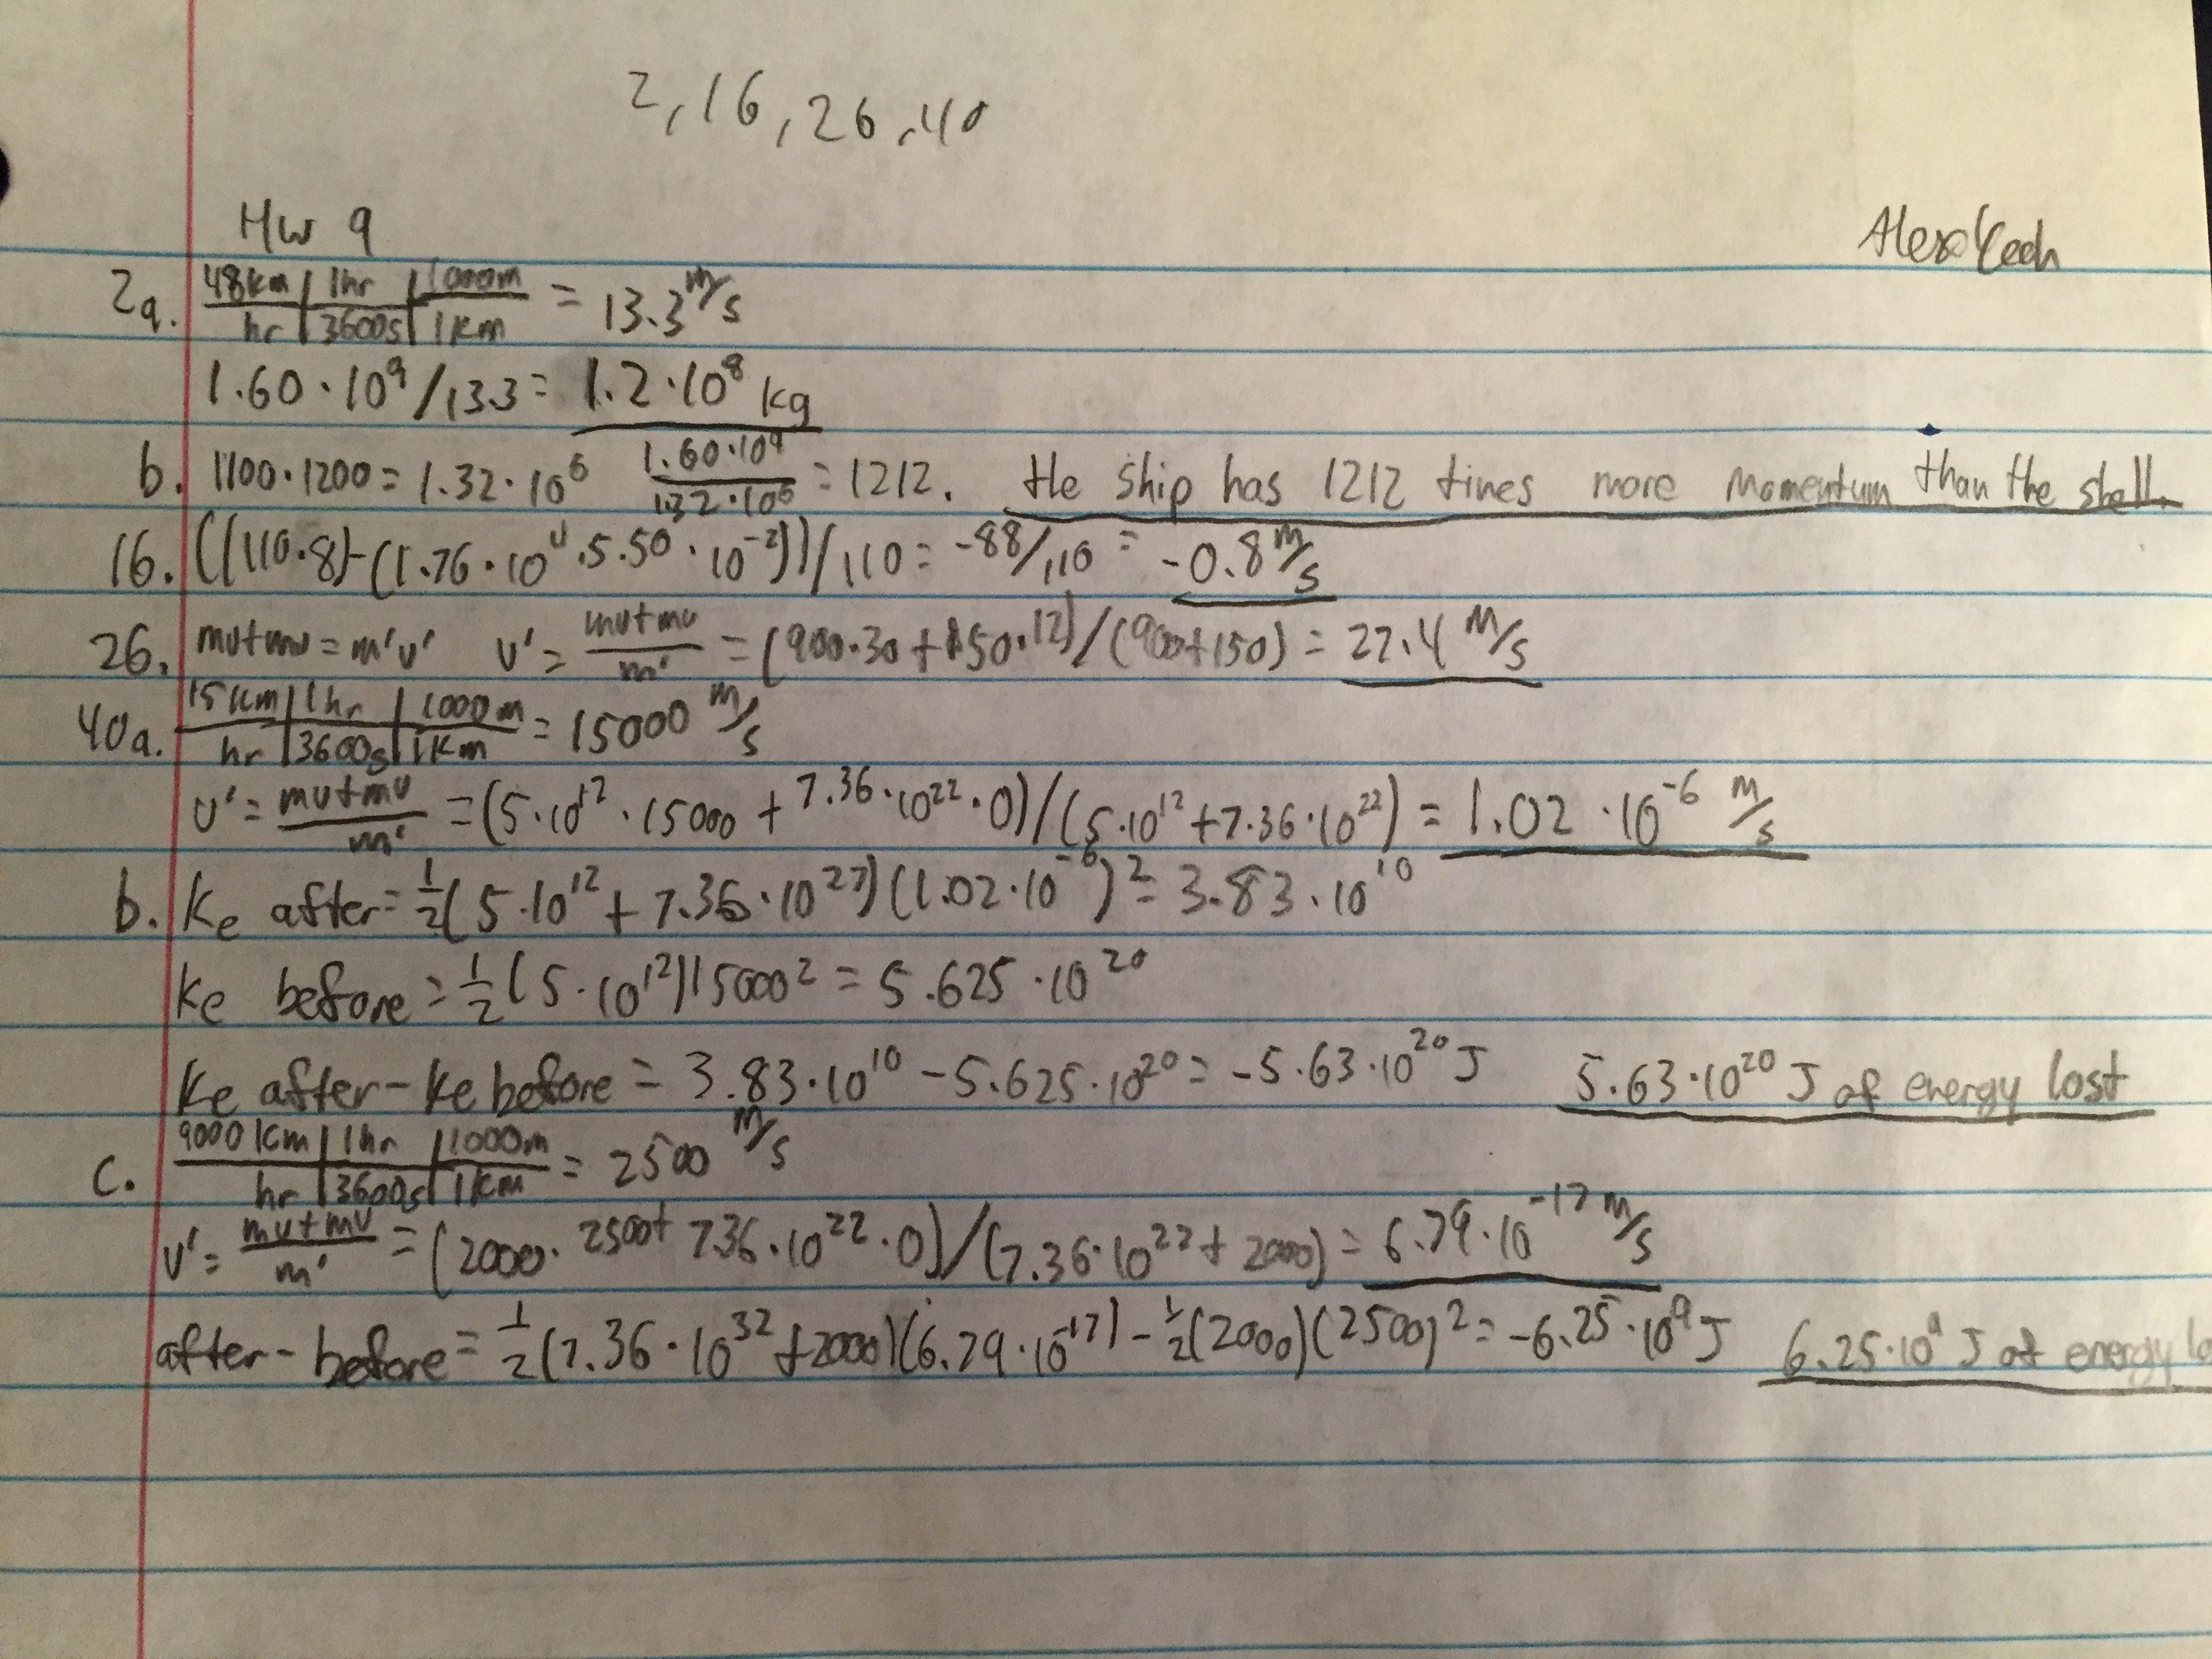 2, 16, 26, 40
HW 9
Alex Yech
2a. 48km/hr | 1hr/3600s | 1000m/1km = 13.3 m/s
1.60·10⁹/13.3 = 1.2·10⁸ kg
b. 1100·1200 = 1.32·10⁶ 1.60·10⁹/1.32·10⁶ = 1212. the ship has 1212 times more momentum than the shell.
16. ((110·8)-(1.76·10⁴·5.50·10⁻²))/110 = -88/110 = -0.8 m/s
26. mv+mv = m'v' v' = mv+mv/m' = (900·30+150·12)/(900+150) = 27.4 m/s
40a. 15km/hr | 1hr/3600s | 1000m/1km = 15000 m/s
v' = mv+mv/m' = (5·10¹²·15000 + 7.36·10²²·0)/(5·10¹²+7.36·10²²) = 1.02·10⁻⁶ m/s
b. Ke after = 1/2(5·10¹² + 7.36·10²²)(1.02·10⁻⁶)² = 3.83·10¹⁰
Ke before = 1/2(5·10¹²)15000² = 5.625·10²⁰
Ke after - Ke before = 3.83·10¹⁰ - 5.625·10²⁰ = -5.63·10²⁰ J 5.63·10²⁰ J of energy lost
c. 9000km/hr | 1hr/3600s | 1000m/1km = 2500 m/s
v' = mv+mv/m' = (2000·2500+7.36·10²²·0)/(7.36·10²²+2000) = 6.79·10⁻¹⁷ m/s
after - before = 1/2(7.36·10³²+2000)(6.79·10⁻¹⁷) - 1/2(2000)(2500)² = -6.25·10⁹ J 6.25·10⁹ J of energy lo